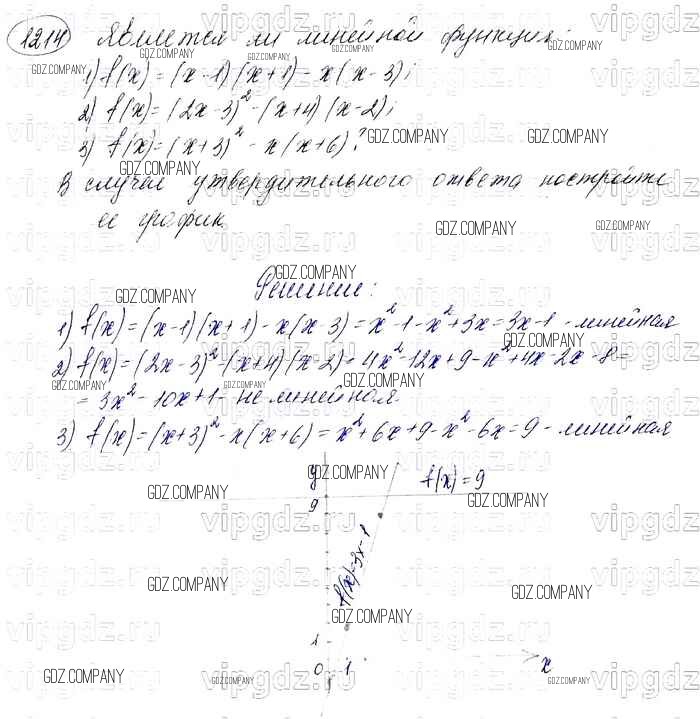 1214 Является ли линейной функция:
1) f(x) = (x-1)(x+1) - x(x-3);
2) f(x) = (2x-3)² - (x+4)(x-2);
3) f(x) = (x+3)² - x(x+6)?
В случае утвердительного ответа постройте
ее график
Решение:
1) f(x) = (x-1)(x+1) - x(x-3) = x² - 1 - x² + 3x = 3x - 1 - линейная
2) f(x) = (2x-3)² - (x+4)(x-2) = 4x² - 12x + 9 - x² + 4x - 2x - 8 =
= 3x² - 10x + 1 - не линейная
3) f(x) = (x+3)² - x(x+6) = x² + 6x + 9 - x² - 6x = 9 - линейная
y
f(x) = 9
9
f(x)=3x-1
1
0 1 x
GDZ.COMPANY
vipgdz.ru